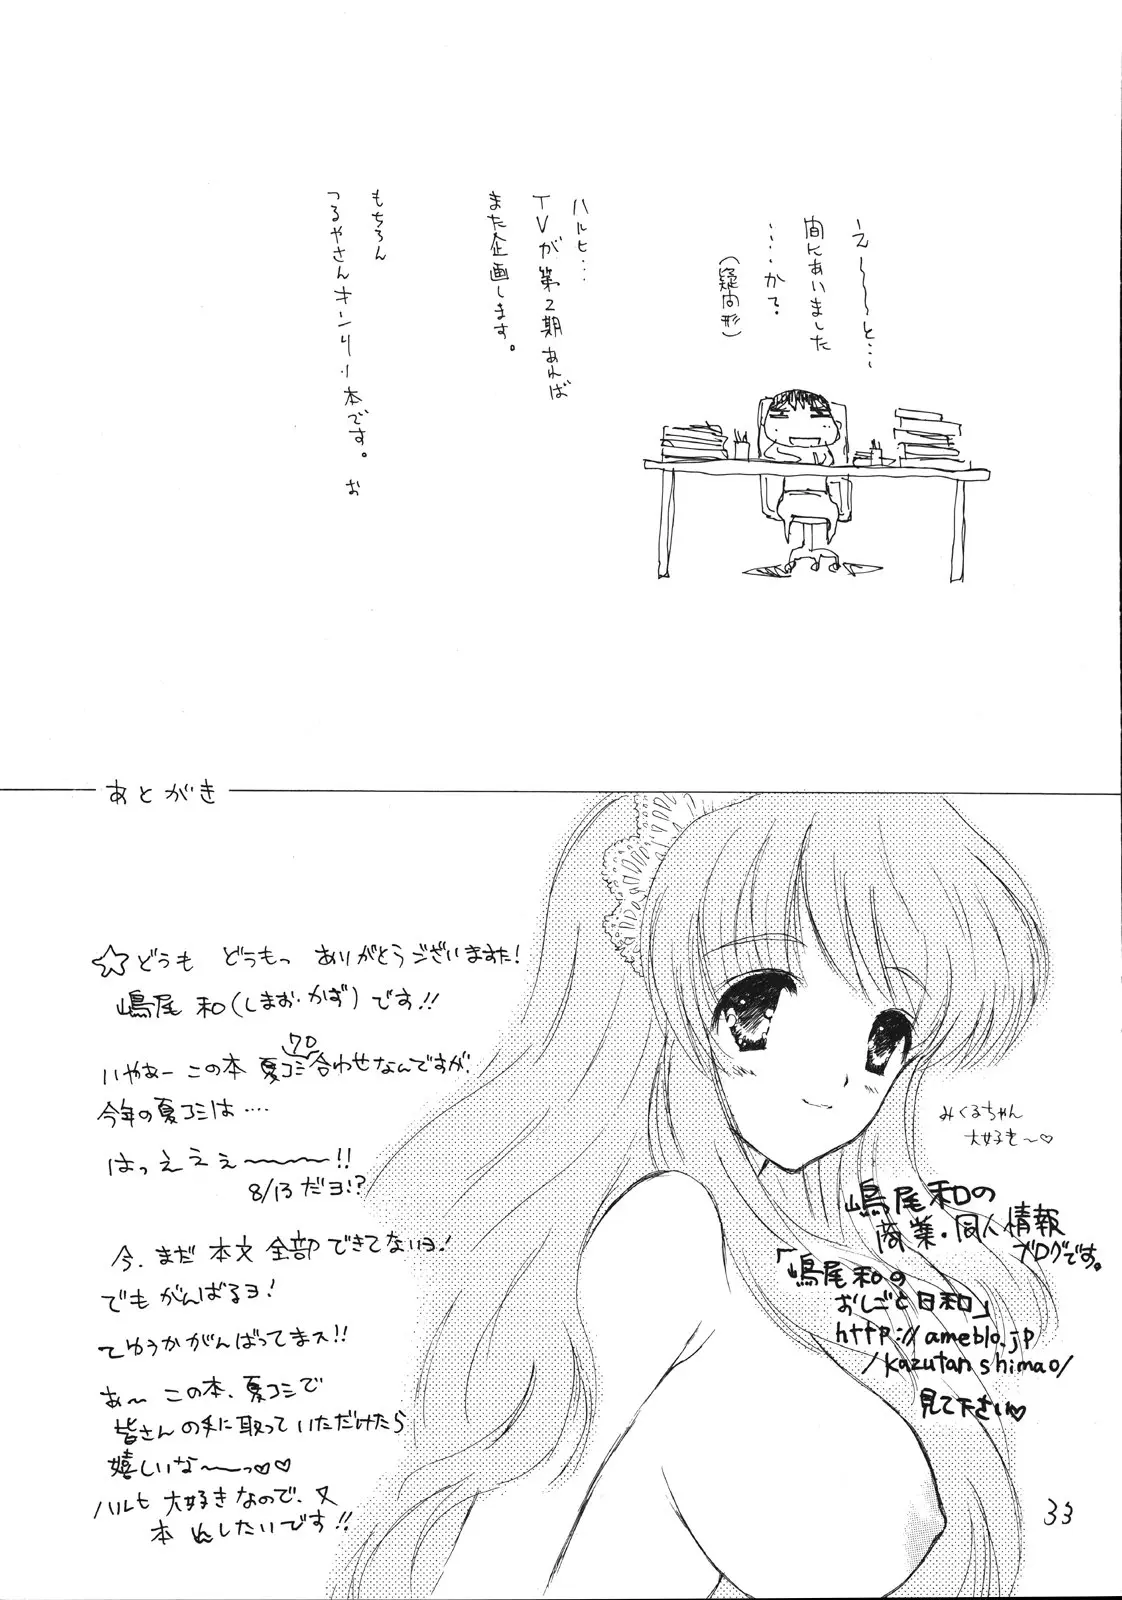 え～～～と…
間にあいました
…‥か?
(疑問形)
ハルヒ…
TVが第2期あれば
また企画します。
もちろん
つるやさんオンリー本です。 お
あとがき
☆どうも どうもっ ありがとうございますた!
嶋尾 和(しまお・かず)です!!
いやぁー この本 夏コミ合わせなんですが、
今年の夏コミは‥‥
はっえぇぇ～～～!!
8/13だヨ!?
今、まだ 本文 全部 できてないヨ!
でもがんばるヨ!
てゆうかがんばってまス!!
あ～ この本、夏コミで
皆さんの手に取っていただけたら
嬉しいな～～っ♡♡
ハルヒ 大好きなので、又
本 だしたいです!!
みくるちゃん
大好き～♡
嶋尾和の
商業・同人情報
ブログです。
「嶋尾和の
おしごと日和」
http://ameblo.jp
/kazutanshimao/
見て下さい♡
33